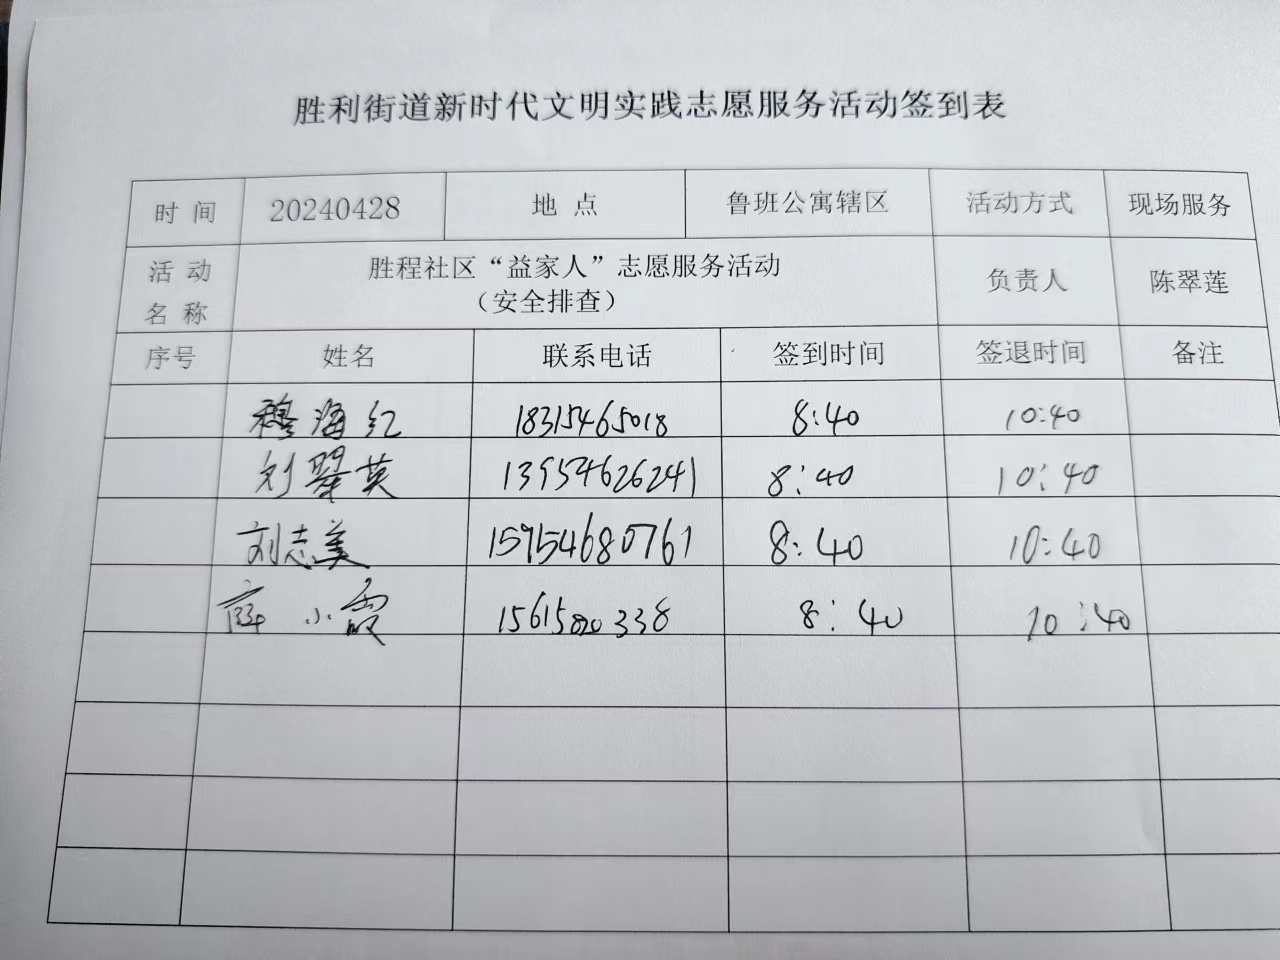 胜利街道新时代文明实践志愿服务活动签到表
时 间 20240428 地 点 鲁班公寓辖区 活动方式 现场服务
活 动 名 称 胜程社区“益家人”志愿服务活动 （安全排查） 负责人 陈翠莲
序号 姓名 联系电话 签到时间 签退时间 备注
穆海红 18315465018 8:40 10:40
刘翠英 13954626241 8:40 10:40
刘志美 15954680761 8:40 10:40
薛小霞 15615820338 8:40 10:40